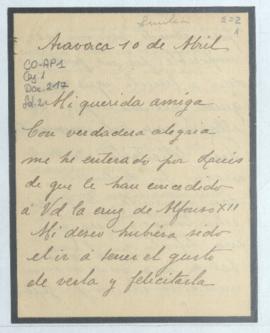 202
Aravaca 10 de Abril
CO-AP1
Caj. 1
Doc. 217
Mi querida amiga
Con verdadera alegria
me he enterado por Luis
de que le han concedido
á Vd la cruz de Alfonso XII
Mi deseo hubiera sido
el ir á tener el gusto
de verla y felicitarla